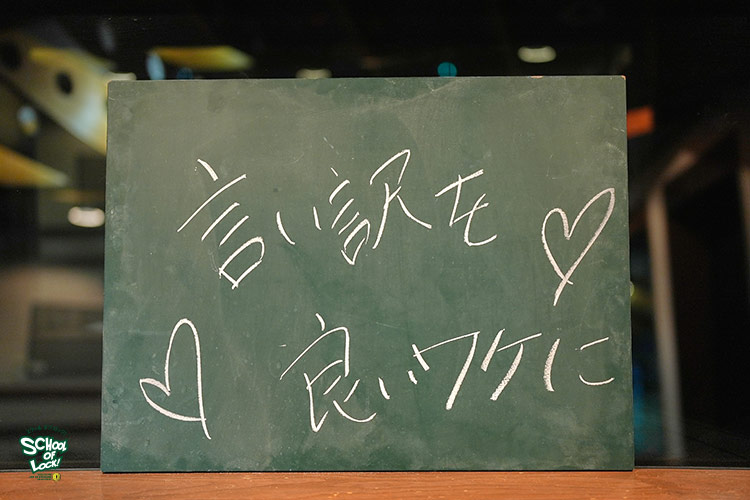 言い訳を
良いワケに
SCHOOL
OF
LOCK!